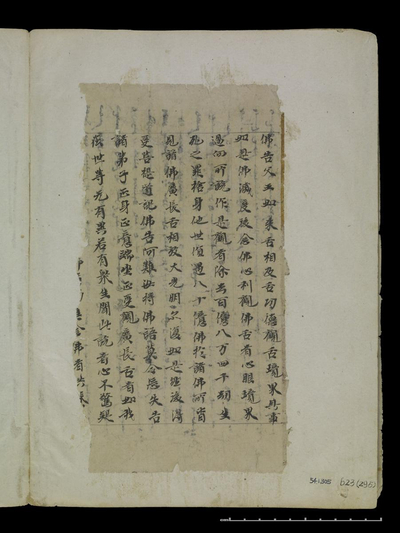 佛告父王如來舌相及舌功德觀舌境界其事
如是佛滅度後念佛心利觀佛舌者心眼境界
如向所說作是觀者除去百億八万四千劫生
死之罪捨身他世值遇八十億佛於諸佛所皆
見諸佛廣長舌相放大光明亦復如是然後得
受菩提道記佛告阿難汝持佛語莫令忘失告
諸弟子正身正意端坐正受觀廣長舌者如我
在世等无有異若有眾生聞此說者心不驚疑
念佛者
623(295)